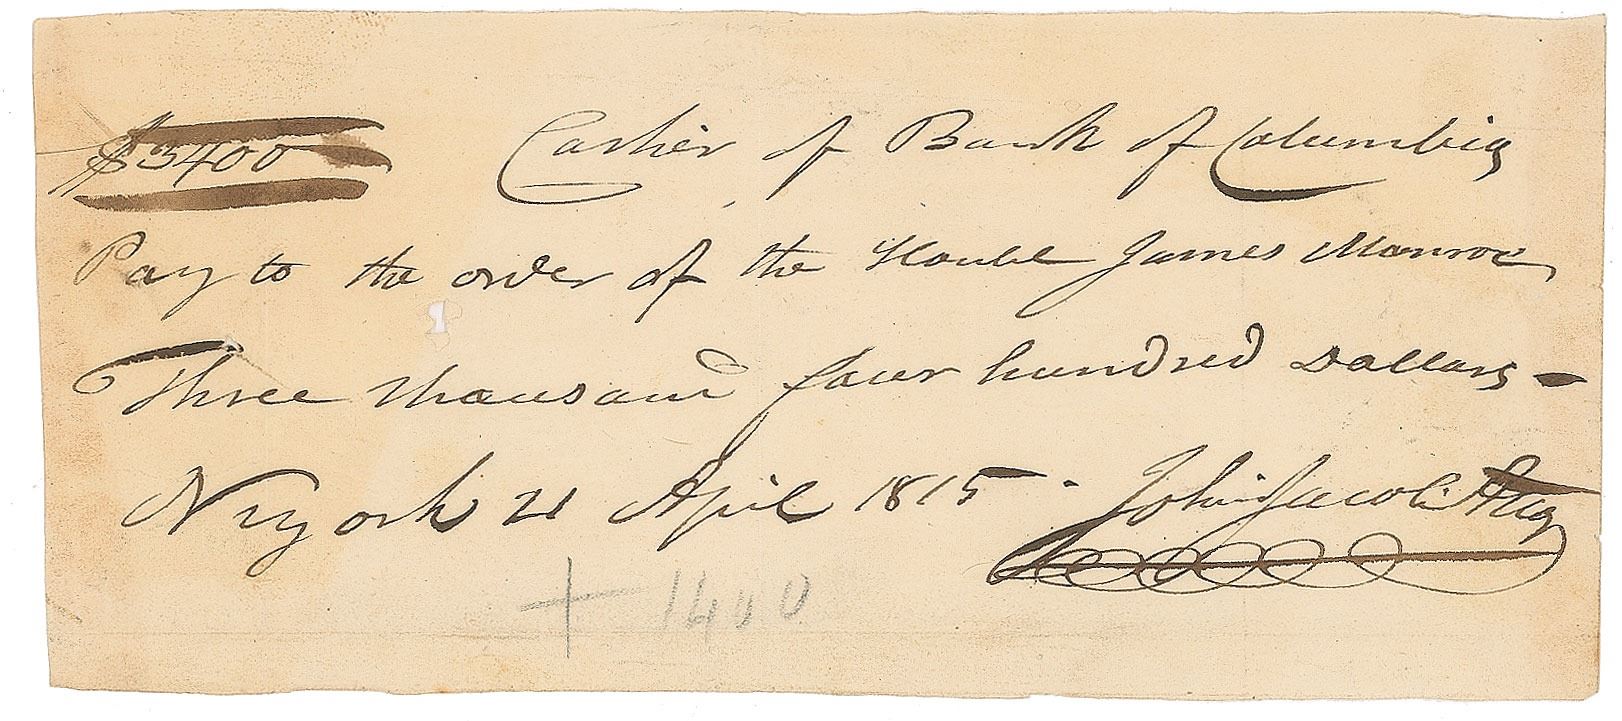 $3400 Cashier of Bank of Columbia
Pay to the order of the Honble James Monroe
Three thousand four hundred Dollars –
New york 21 April 1815 · John Jacob Astor
+ 1600